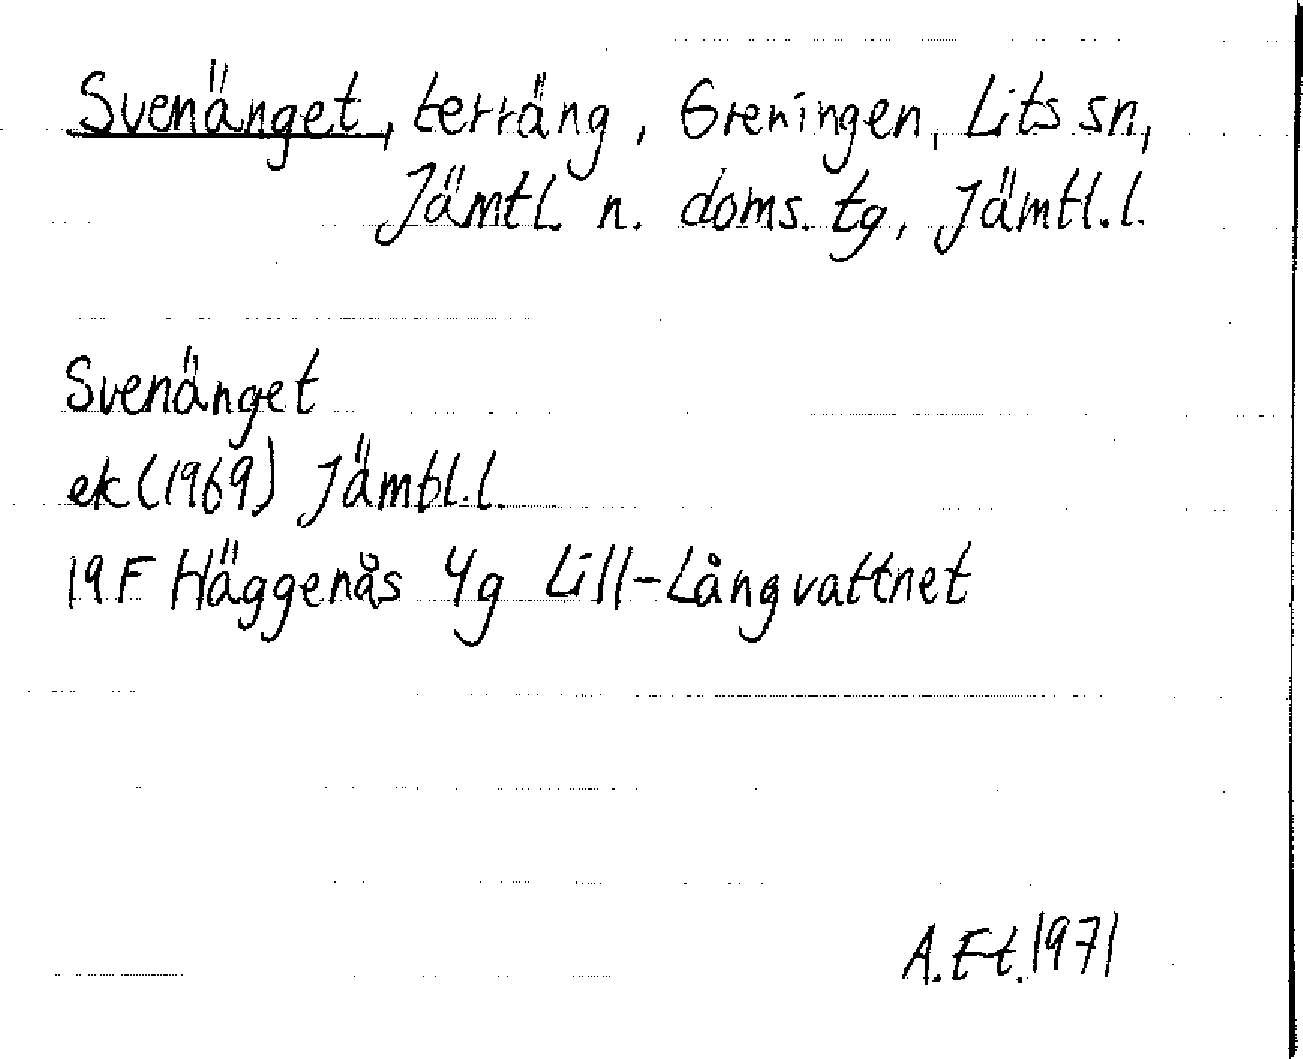 Svenänget, terräng, Greningen, Lits sn,
Jämtl. n. doms. tg, Jämtl. l.
Svenänget
ek (1969) Jämtl. l.
19F Häggenås 4g Lill-Långvattnet
A. E-t. 1971